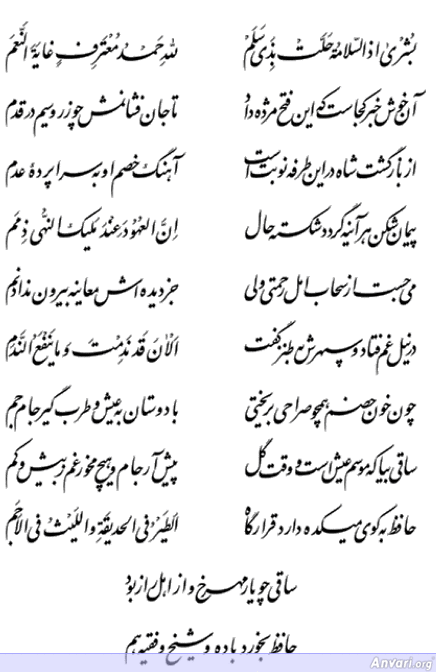 بُشری اِذِ السَّلامَةُ حَلَّت بِذی سَلَم لِلّهِ حَمدُ مُعتَرِفٍ غایَةَ النِّعَم
آن خوش خبر کجاست که این فتح مژده داد تا جان فشانمش چو زر و سیم در قدم
از بازگشت شاه در این طرفه نوبت است آهنگ خصم او به سراپردهٔ عدم
پیمان شکن هرآینه گردد شکسته حال اِنَّ العُهُودَ عِندَ مَلیکِ النُّهی ذِمَم
می‌جست از سحاب امل رحمتی ولی جز دیده‌اش معاینه بیرون نداد نم
در نیل غم فتاد و سپهرش به طنز گفت اَلآنَ قَد نَدِمتَ وَ ما یَنفَعُ النَّدَم
چون خون خصم همچو صراحی بریختی با دوستان به عیش و طرب گیر جام جم
ساقی بیا که موسم عیش است و وقت گل پیش آر جام و هیچ مخور غم ز بیش و کم
حافظ به کوی میکده دارد قرارگاه اَلطَّیرُ فی الحَدیقَةِ وَ اللَّیثُ فی الاَجَم
ساقی چو یار مهرخ و از اهل راز بود
حافظ بخورد باده و شیخ و فقیه هم
Anvari.org